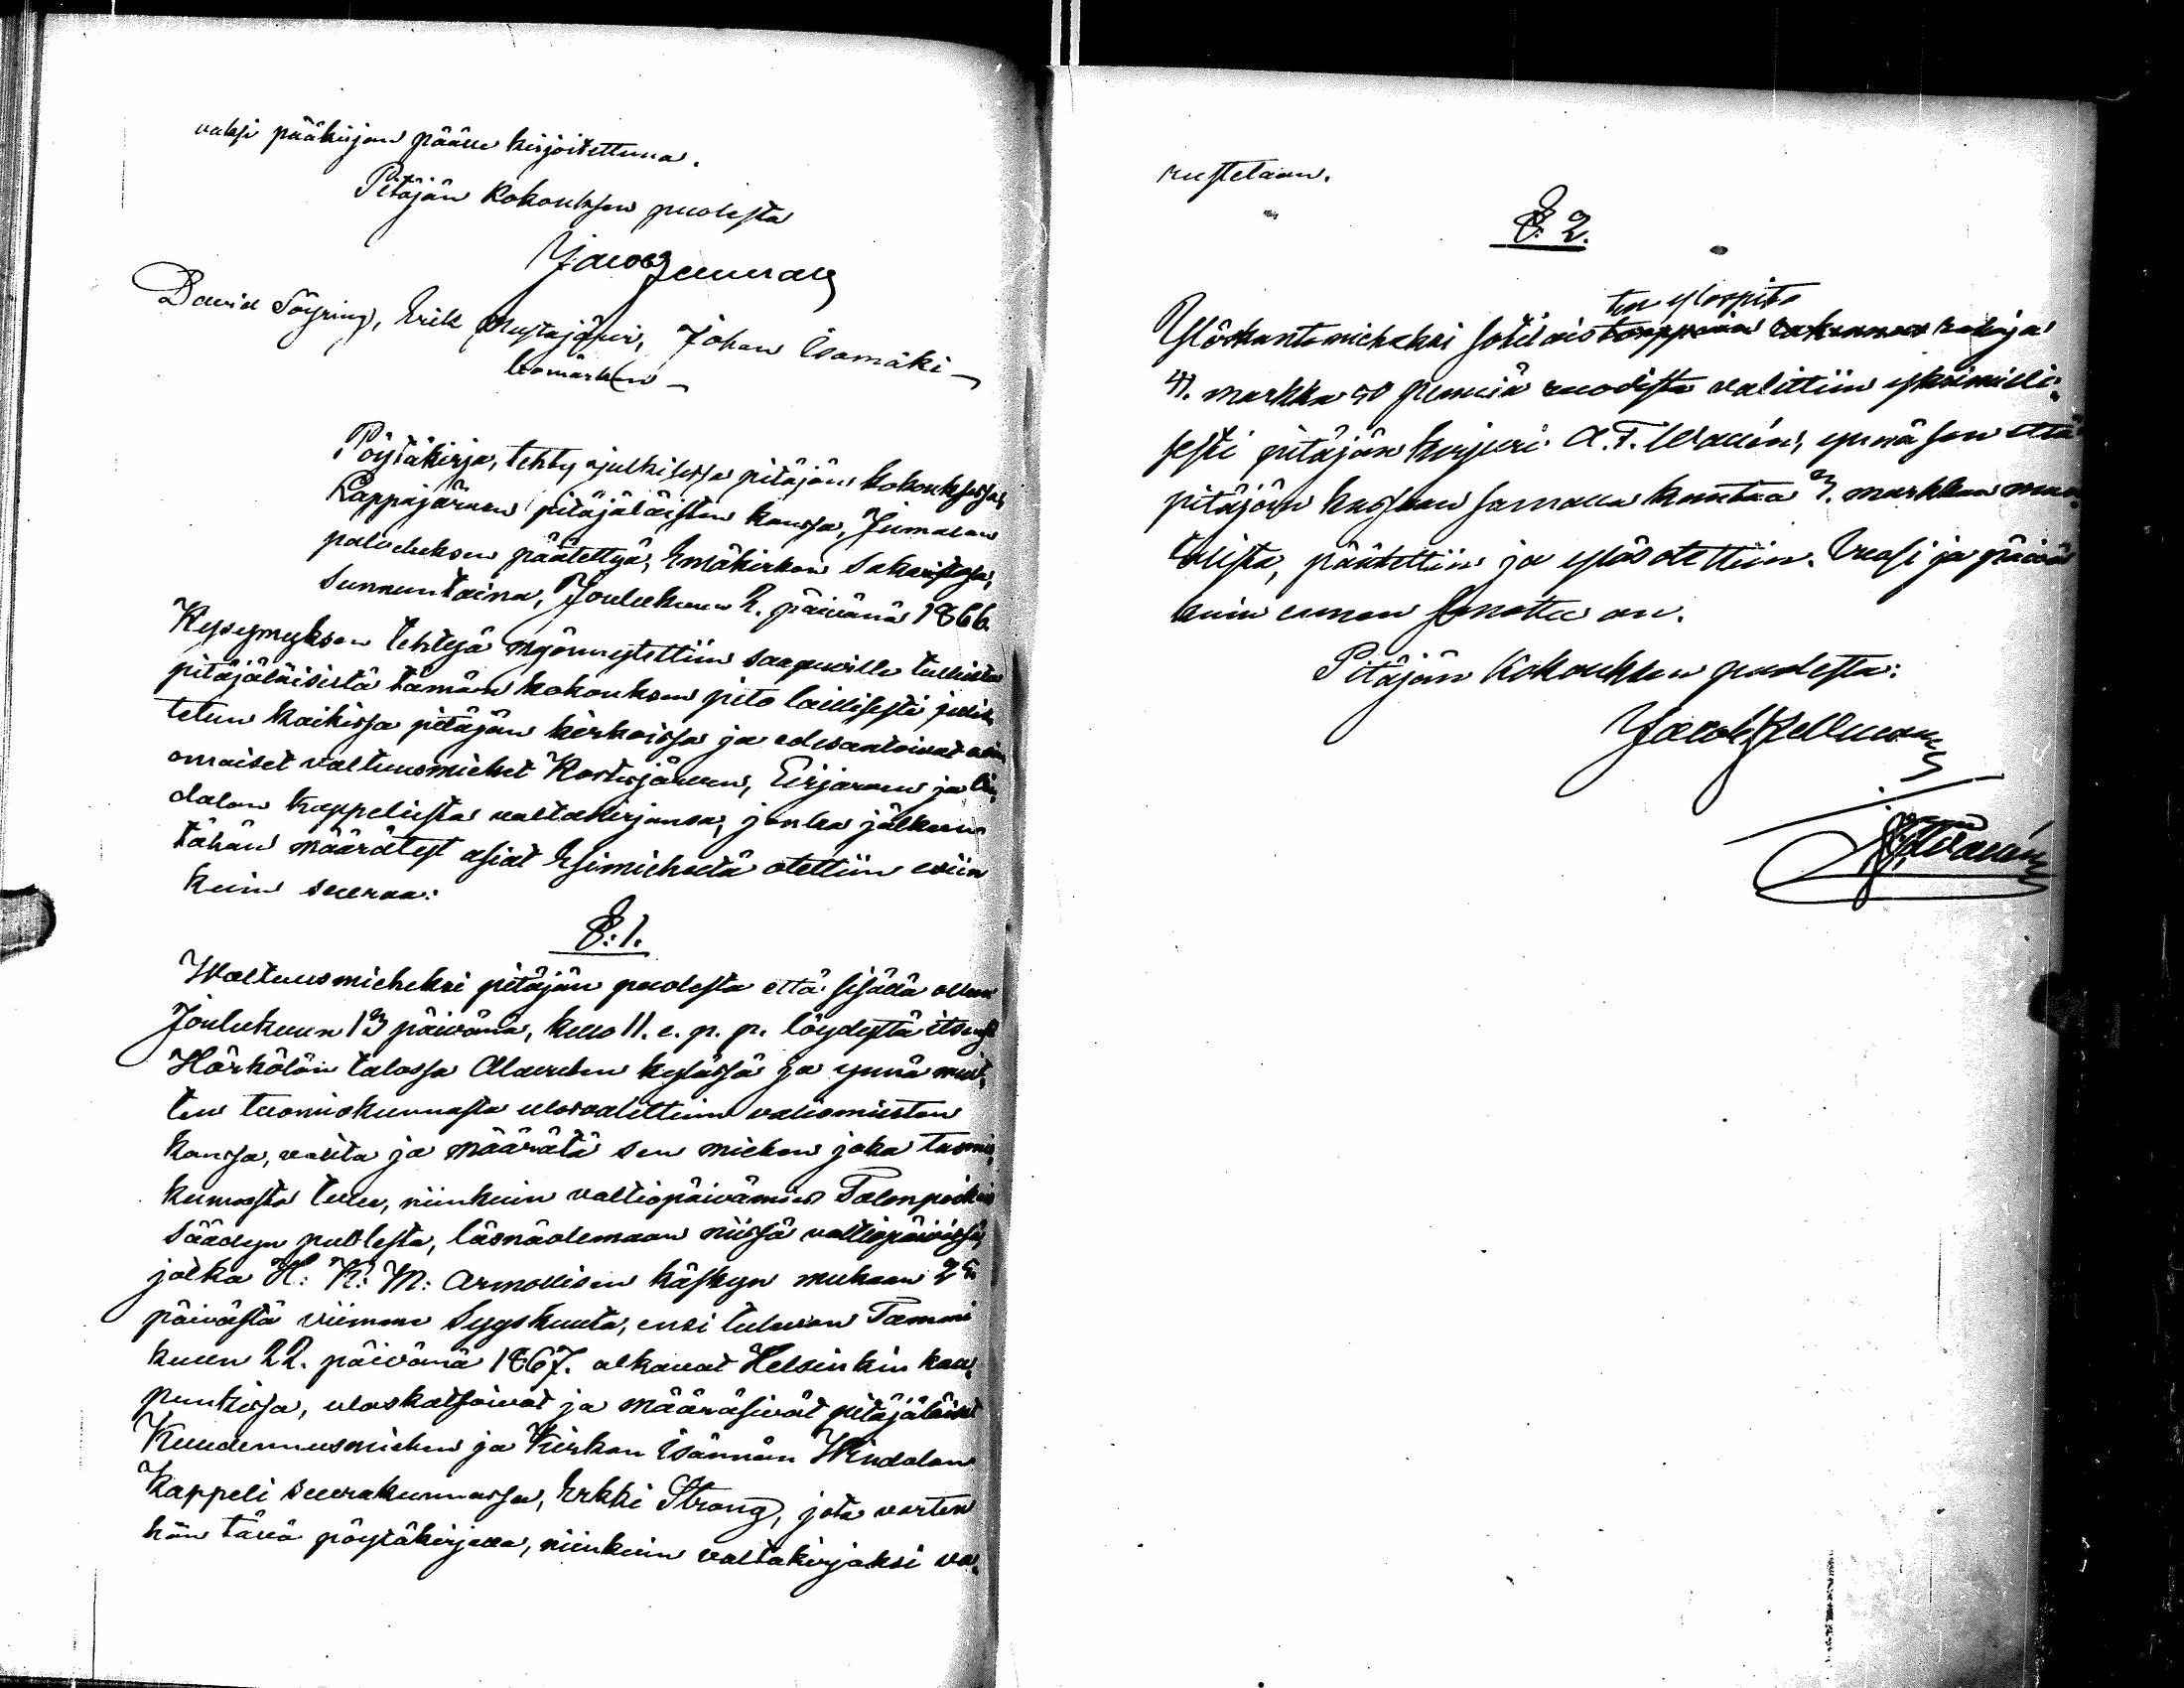 vaksi pääkirjan päälle kirjoitettuna.
Pitäjän Kokouksen puolesta
David Söyring, Erik Mustajärvi, Johan Isomäki —
Pöytäkirja, tehty julkisessa pitäjän kokouksessa,
Lappajärven pitäjäläisten kanssa, Jumalan
palveluksen päätettyä, Emäkirkon Sakaristossa,
Sunnuntaina, Joulukuun 2. päivänä 1866.
Kysymyksen tehtyä myönnytettiin saapuville tulleista
pitäjäläisistä tämän kokouksen pito laillisesti julis,
tetun kaikissa pitäjän kirkoissa ja edesantoivat asian
omaiset valtuusmiehet Kortesjärven, Evijärven ja Vin,
dalan kappelista valtakirjansa, jonka jälkeen
tähän määrätyt asiat Esimieheltä otettiin esiin
kuin seuraa:
§:1.
Waltuusmieheksi pitäjän puolesta että sisällä olevan
Joulukuun 13 päivänä, kello 11. e. p. p. löydyttä itsensä
Härkölän talossa Alaveden kylässä ja ynnä muit,
ten tuomiokunnasta ulosvalittuin valiomiesten
kanssa, valita ja määrätä sen miehen joka tuomio
kunnasta tulee, niinkuin valtiopäivämies Talonpoikais
säädyn puolesta, läsnäolemaan niissä valtiopäivissä,
jotka H: K: M: Armollisen käskyn mukaan
päivästä viimme Syyskuuta, ensi tulevan Tammi
kuun 22. päivänä 1867. alkavat Helsinkin kau,
punkissa, uloskatsoivat ja määräsivät pitäjäläiset
Kuudennusmiehen ja Kirkon Isännän Windalan
Kappeli seurakunnassa, Erkki Strang, jota varten
hän tällä pöytäkirjalla, niinkuin valtakirjaksi va,
rustetaan.
§: 2.
ten ylöspito
Ylöskantomieheksi sotilais rahoja
41. markka 50 penniä ruodista valittiin yksimieli,
sesti pitäjän kruupuri A. F. Wallin, ynnä sen että
pitäjän kassaan samalla kantaa 3. markkaa
päätettiin ja ylösotettiin. Vuosi ja päivä
kuin ennen sanottu on.
Pitäjän Kokouksen puolesta:
Jacob Hellman